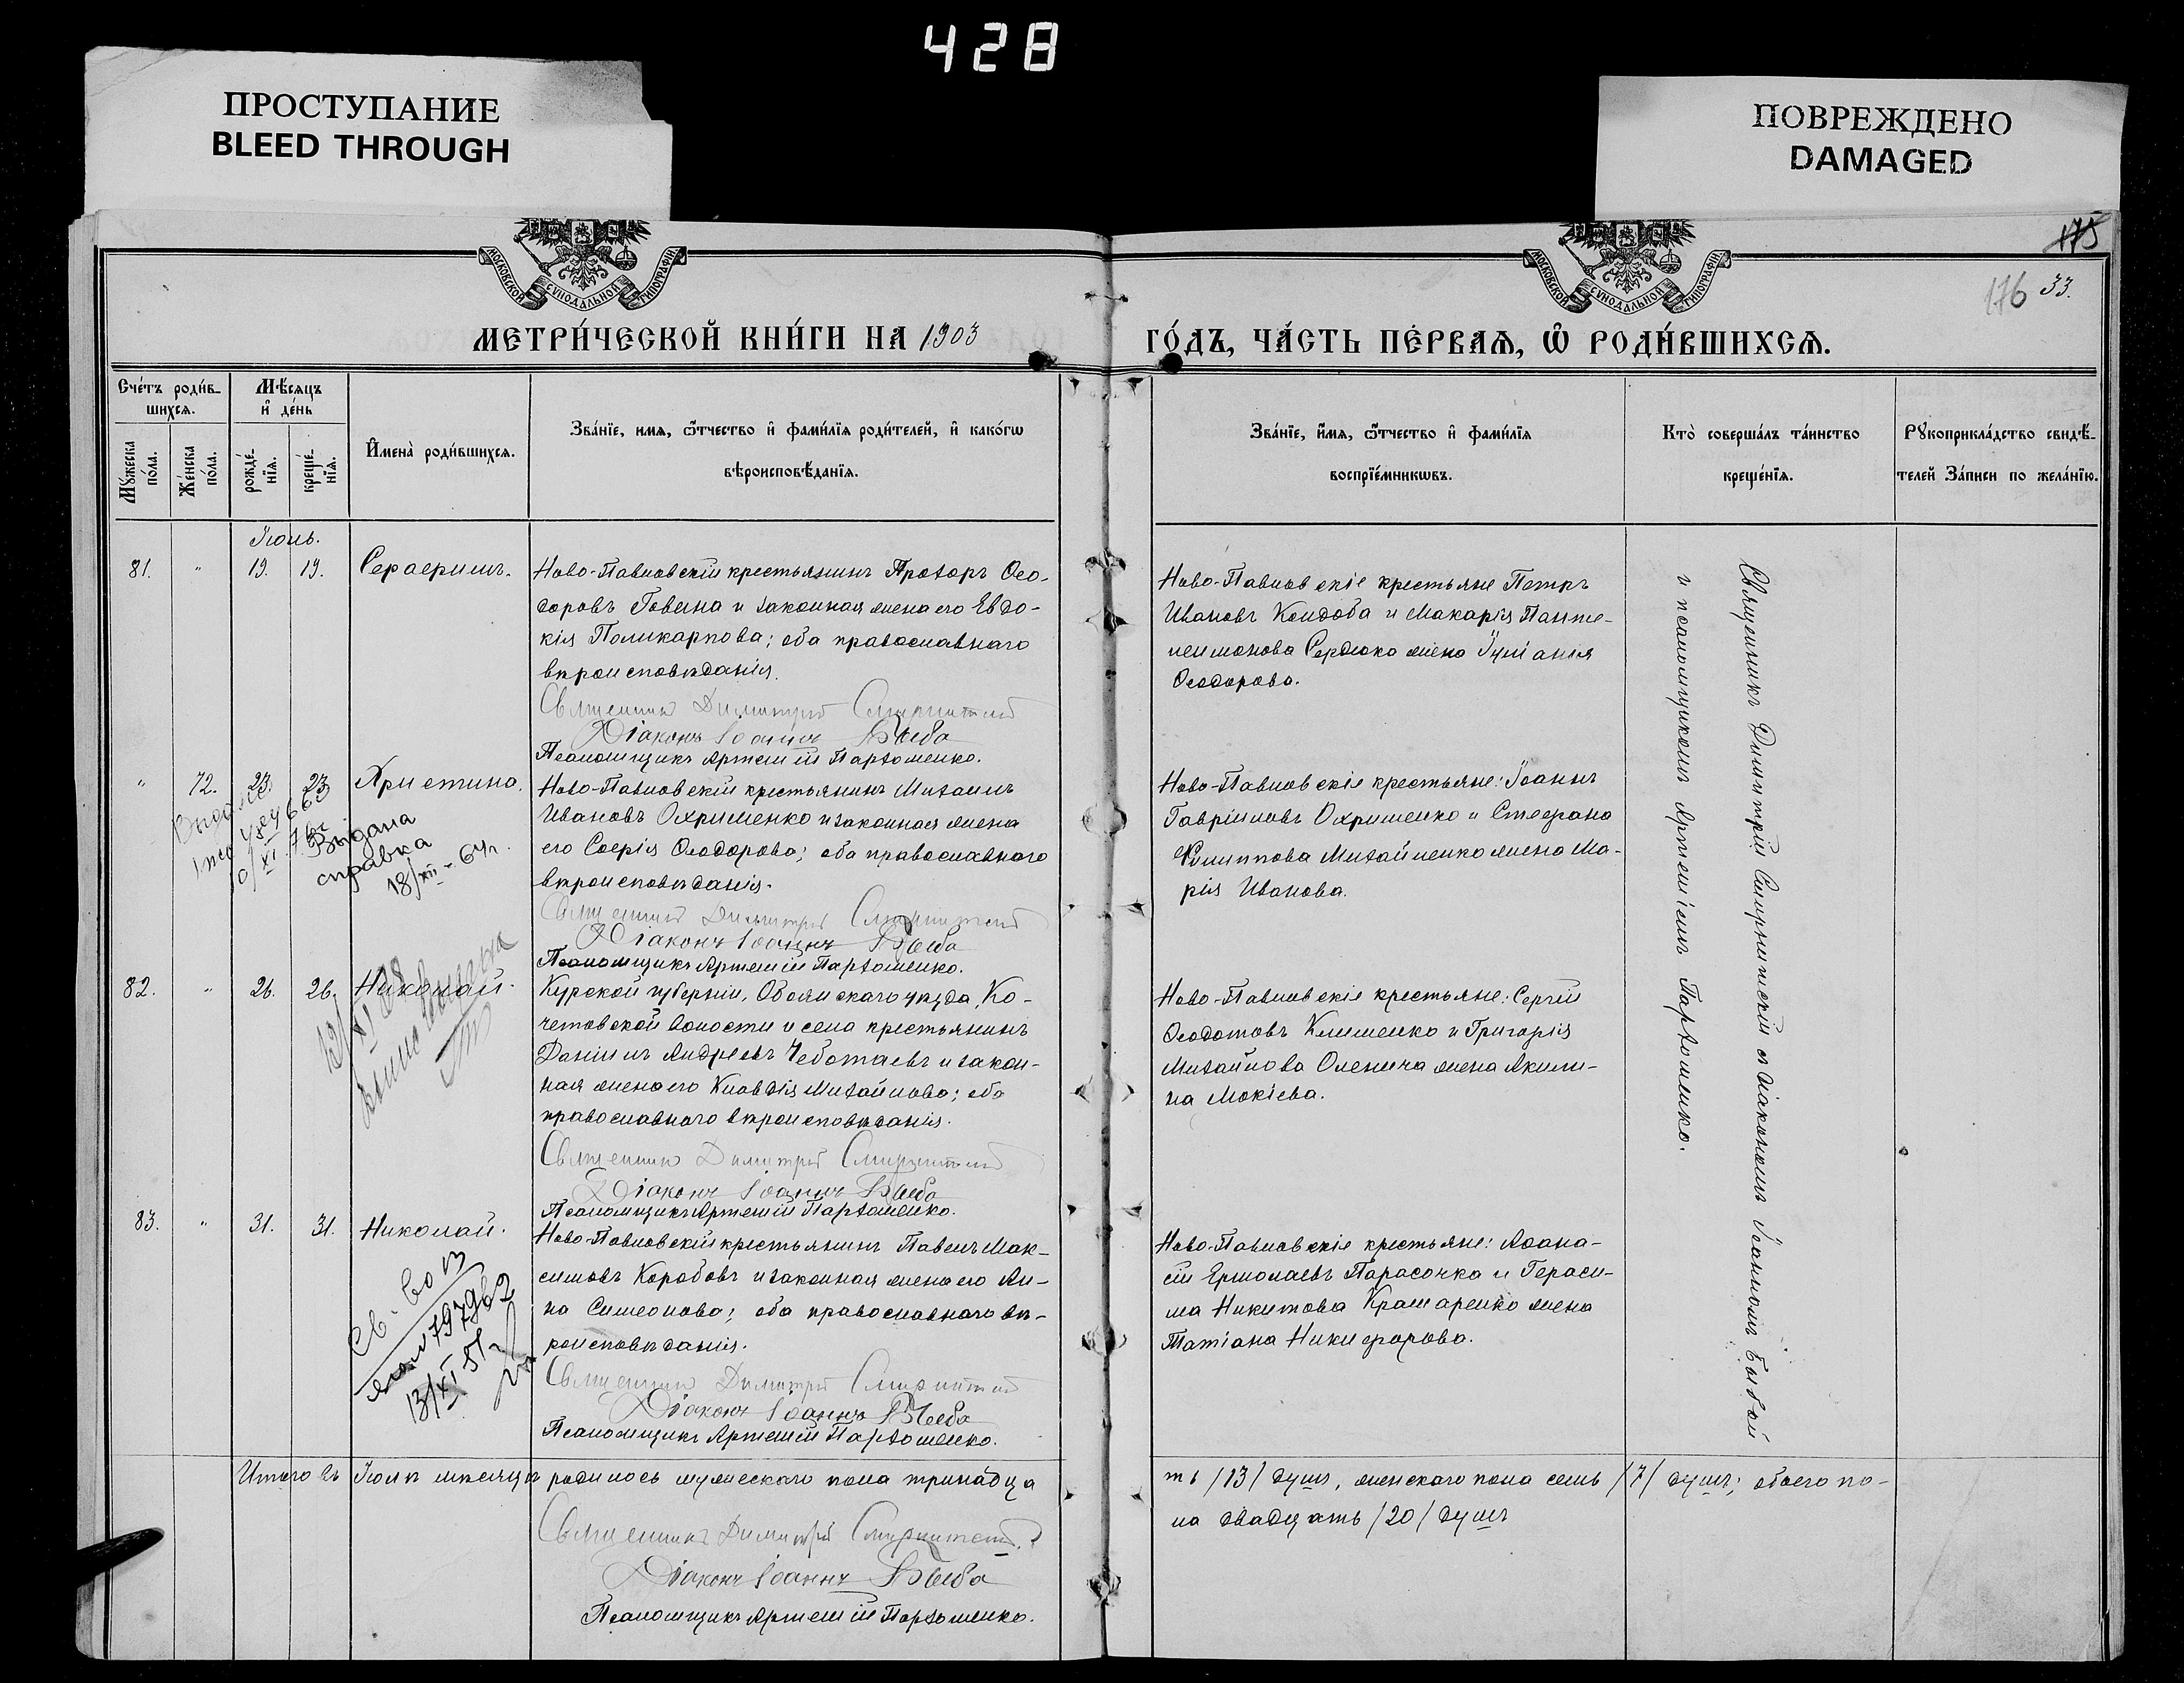 428
ПРОСТУПАНИЕ
BLEED THROUGH
ПОВРЕЖДЕНО
DAMAGED
175
176 33.
МОСКОВСКОЙ СѴНОДАЛЬНОЙ ТИПОГРАФІИ
МОСКОВСКОЙ СѴНОДАЛЬНОЙ ТИПОГРАФІИ
МЕТРИ́ЧЕСКОЙ КНИ́ГИ НА 1903
ГО́ДЪ, ЧА́СТЬ ПЕ́РВАѦ, Ѡ РОДИ́ВШИХСѦ.
Сче́тъ роди́в-
шихсѧ.
Мꙋ́жеска по́ла.
Же́нска по́ла.
Мѣ́сѧцъ
и де́нь
рожде́-нїѧ.
креще́-нїѧ.
И҆мена̀ роди́вшихсѧ.
Зва́нїе, имѧ, ѻ҆́тчество и҆ фами́лїѧ роди́телей, и҆ како́гѡ
вѣроисповѣ́данїѧ.
Зва́нїе, и҆́мѧ, ѻ҆́тчество и҆ фами́лїѧ
воспрїе́мникѡвъ.
Кто̀ соверша́лъ та́инство
креще́нїѧ.
Рꙋкоприкла́дство свидѣ́-
телей За́писи по жела́нїю.
Іюль.
81. " 19. 19. Серафимъ.
Ново-Павловскій крестьянинъ Прохоръ Ѳео-
доровъ Говина и законная жена его Евдо-
кія Поликарпова; оба православнаго
вѣроисповѣданія.
Священникъ Димитрій
Діаконъ Іоаннъ
Псаломщикъ Артемій Пархоменко.
Ново-Павловскіе крестьяне Петръ
Ивановъ Кондоба и Макарія Панте-
леимонова Сердюка жена Іуліанія
Ѳеодорова.
" 72. 23. 23 Христина.
Выдана
справка
18/XII-64г.
Ново-Павловскій крестьянинъ Михаилъ
Ивановъ Охрименко и законная жена
его Софія Ѳеодорова; оба православнаго
вѣроисповѣданія.
Священникъ Димитрій
Діаконъ Іоаннъ
Псаломщикъ Артемій Пархоменко.
Ново-Павловскіе крестьяне: Іоаннъ
Гавріиловъ Охрименко и Стефана
Филиппова Михайленко жена Ма-
рія Иванова.
82. " 26. 26. Николай.
Курской губерніи, Обоянскаго уѣзда, Ко-
четовской волости и села крестьянинъ
Даніилъ Андреевъ Чеботаевъ и закон-
ная жена его Клавдія Михайлова; оба
православнаго вѣроисповѣданія.
Священникъ Димитрій
Діаконъ Іоаннъ
Псаломщикъ Артемій Пархоменко.
Ново-Павловскіе крестьяне: Сергій
Ѳеодотовъ Клименко и Григорія
Михайлова Оленича жена Акили-
на Мокіева.
83. " 31. 31. Николай.
13/XI 51г
Ново-Павловскій крестьянинъ Павелъ Мак-
симовъ Коробовъ и законная жена его Ан-
на Симеонова; оба православнаго вѣ-
роисповѣданія.
Священникъ Димитрій
Діаконъ Іоаннъ
Псаломщикъ Артемій Пархоменко.
Ново-Павловскіе крестьяне: Аѳана-
сій Ермолаевъ Парасочка и Гераси-
ма Никитова Крамаренко жена
Татіана Никифорова.
Священникъ Димитрій съ діакономъ Іоанномъ
и псаломщикомъ Артеміемъ Пархоменко.
Итого въ Іюлѣ мѣсяцѣ родилось мужескаго пола тринадца
ть /13/ душъ, женскаго пола семь /7/ душъ; обоего по-
ла двадцать /20/ душъ
Священникъ Димитрій
Діаконъ Іоаннъ
Псаломщикъ Артемій Пархоменко.